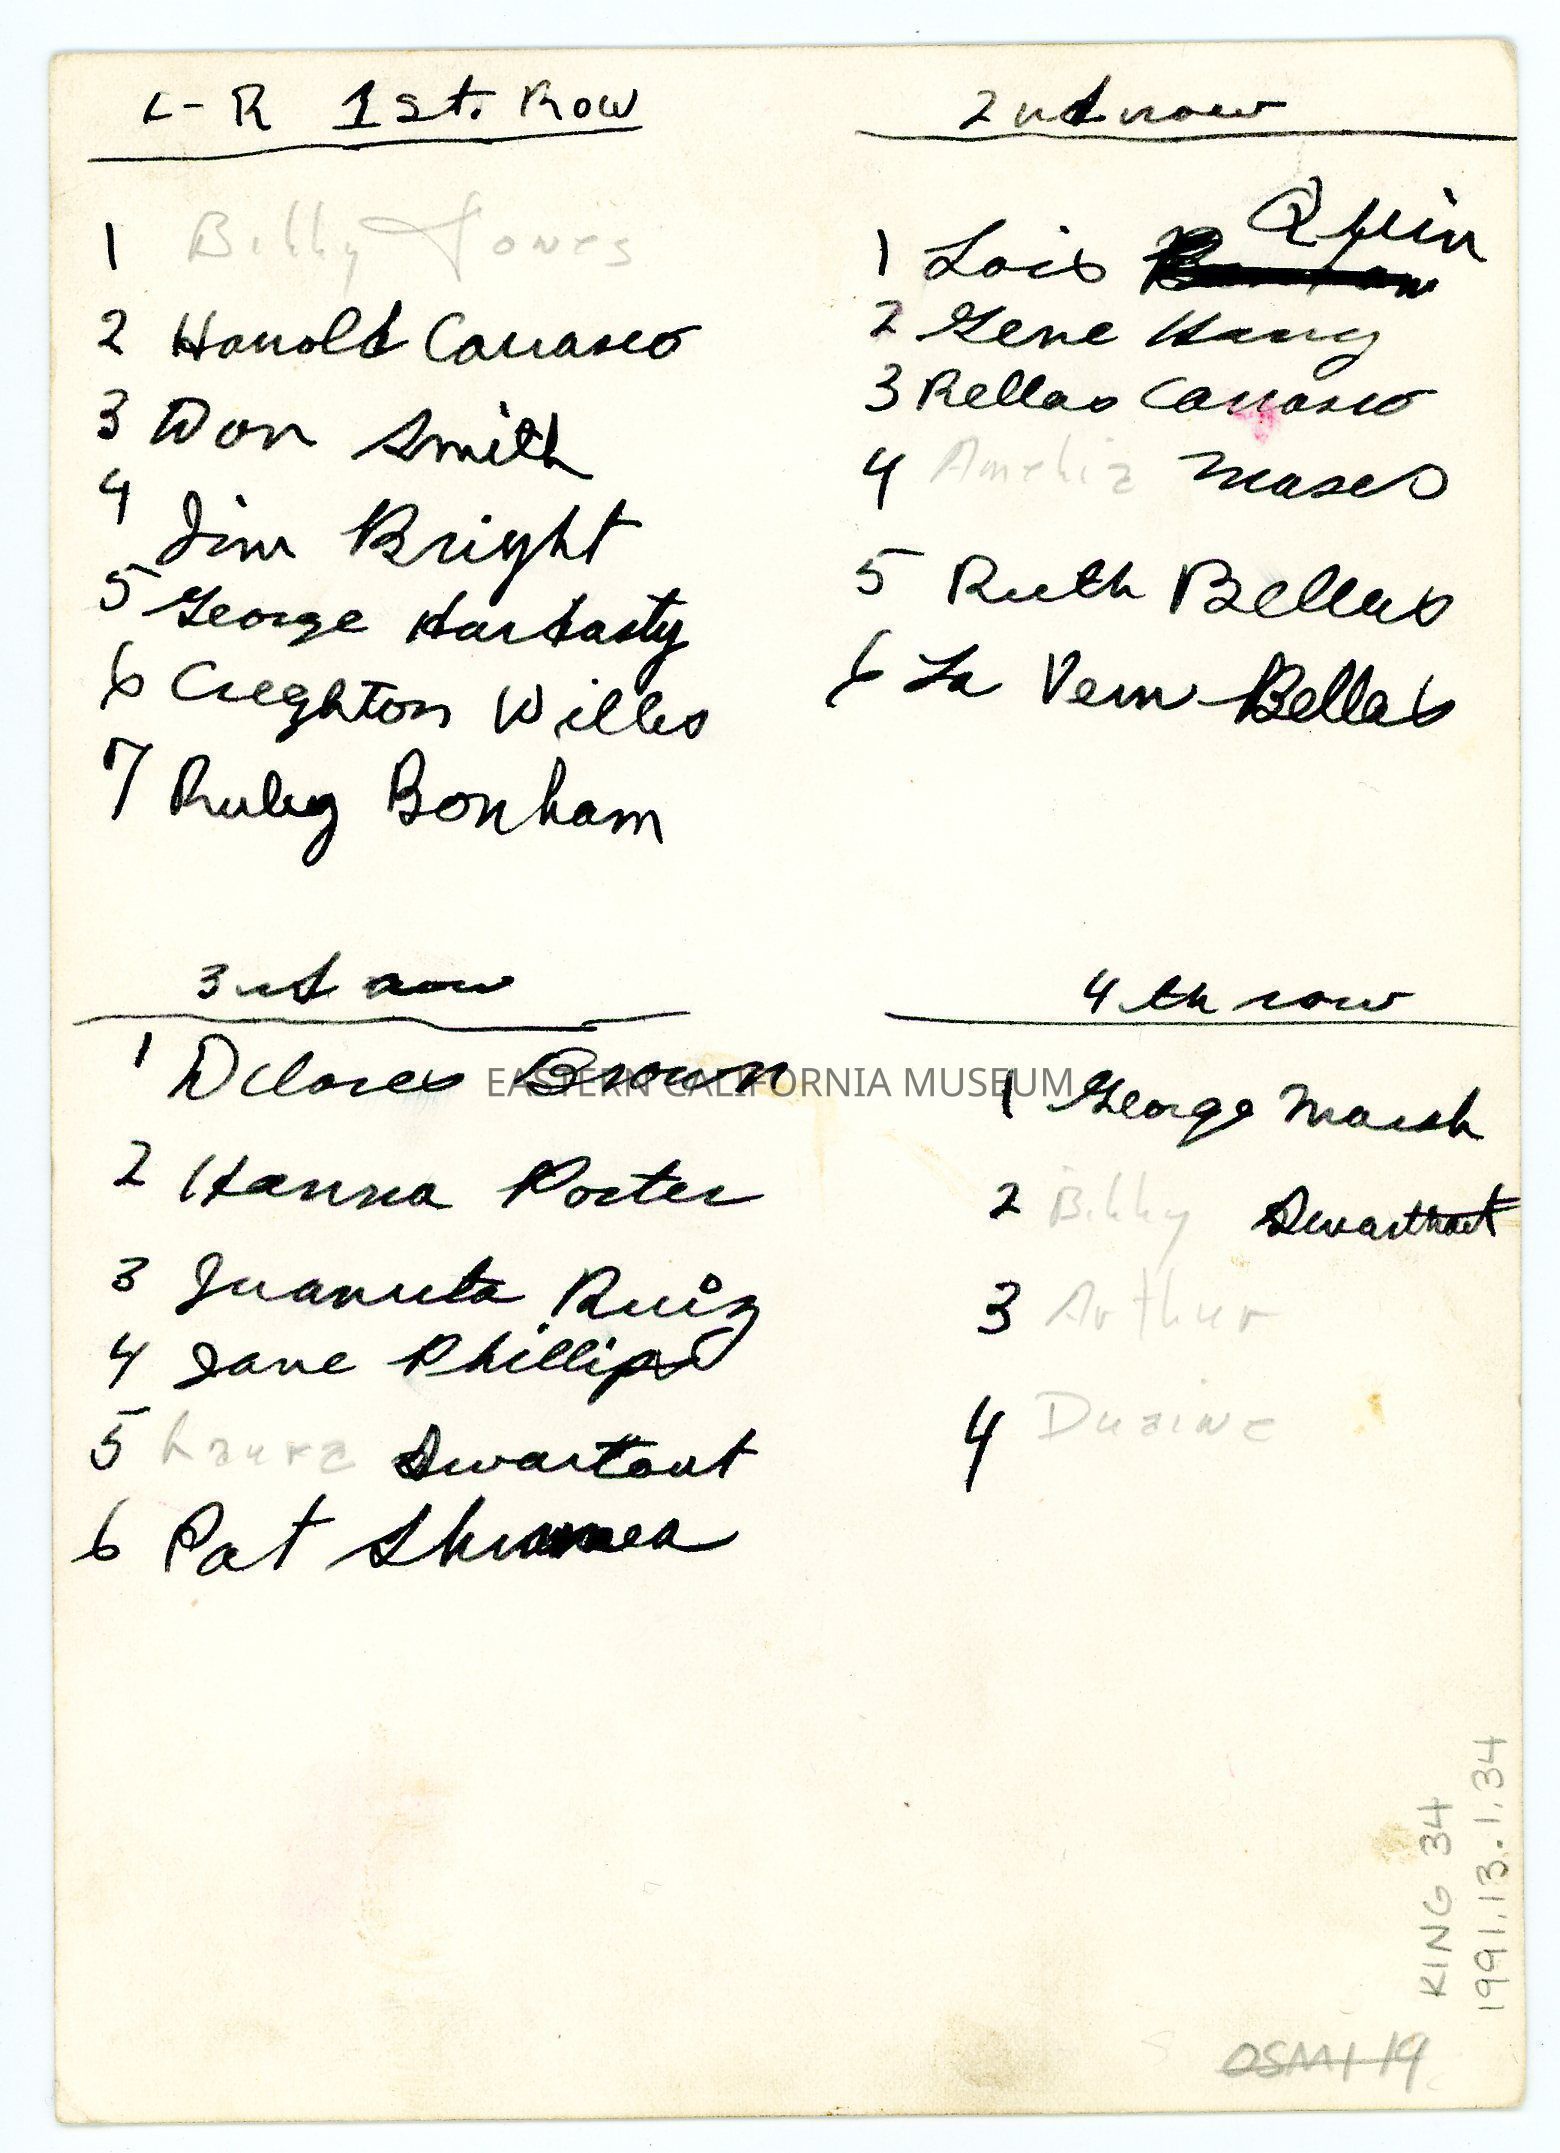 L-R 1st. Row
1 Billy Jones
2 Harold Carrasco
3 Don Smith
4 Jim Bright
5 George Hardasty
6 Creghton Willis
7 Ruby Bonham
2nd row
1 Lois
2 Gene
3 Bellas Carrasco
4 Amelia Moses
5 Ruth Bellas
6 La Vern Bellas
3rd row
1 Delores Brown
2 Hanna Porter
3 Juanita Ruiz
4 Jane Phillips
5 Laura Swartout
6 Pat
4th row
1 George Marsh
2 Billy Swarthout
3 Arthur
4 Duaine
EASTERN CALIFORNIA MUSEUM
KING 34
1991.13.1.34
OSM+19